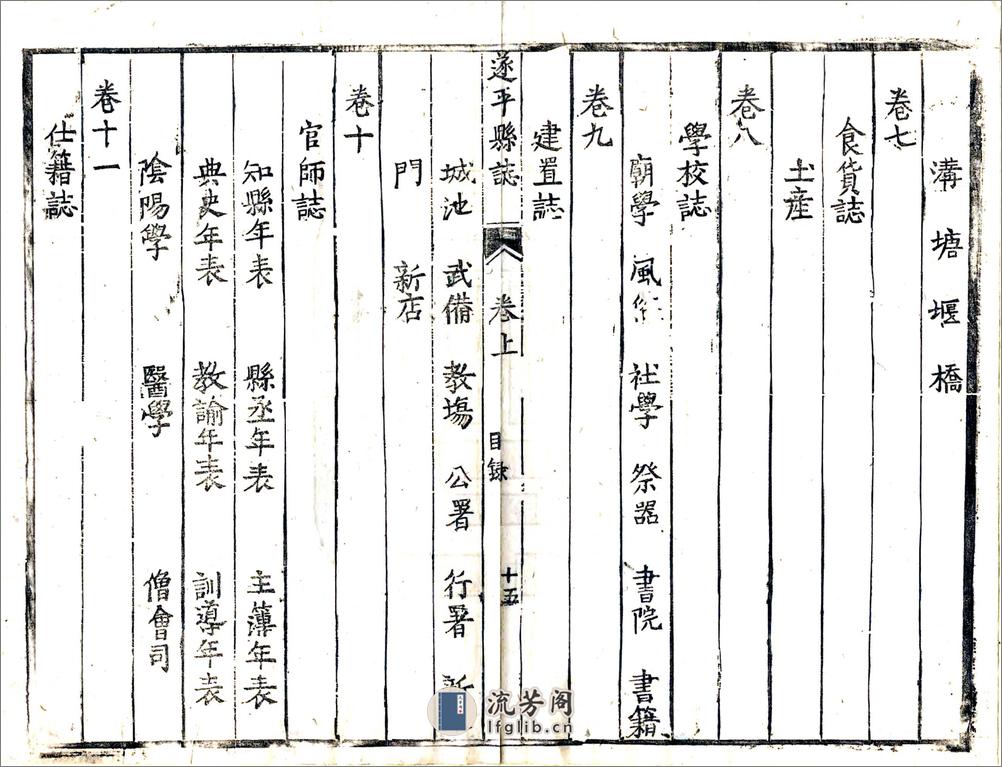 溝 塘 堰 橋
卷七
食貨誌
土産
卷八
學校誌
廟學 風 社學 祭器 書院 書籍
卷九
建置誌
遂平縣誌 卷上 目録 十五
城池 武備 教塲 公署 行署 新
門 新店
卷十
官師誌
知縣年表 縣丞年表 主簿年表
典史年表 教諭年表 訓導年表
陰陽學 醫學 僧會司
卷十一
仕籍誌
流芳阁
lfglib.cn